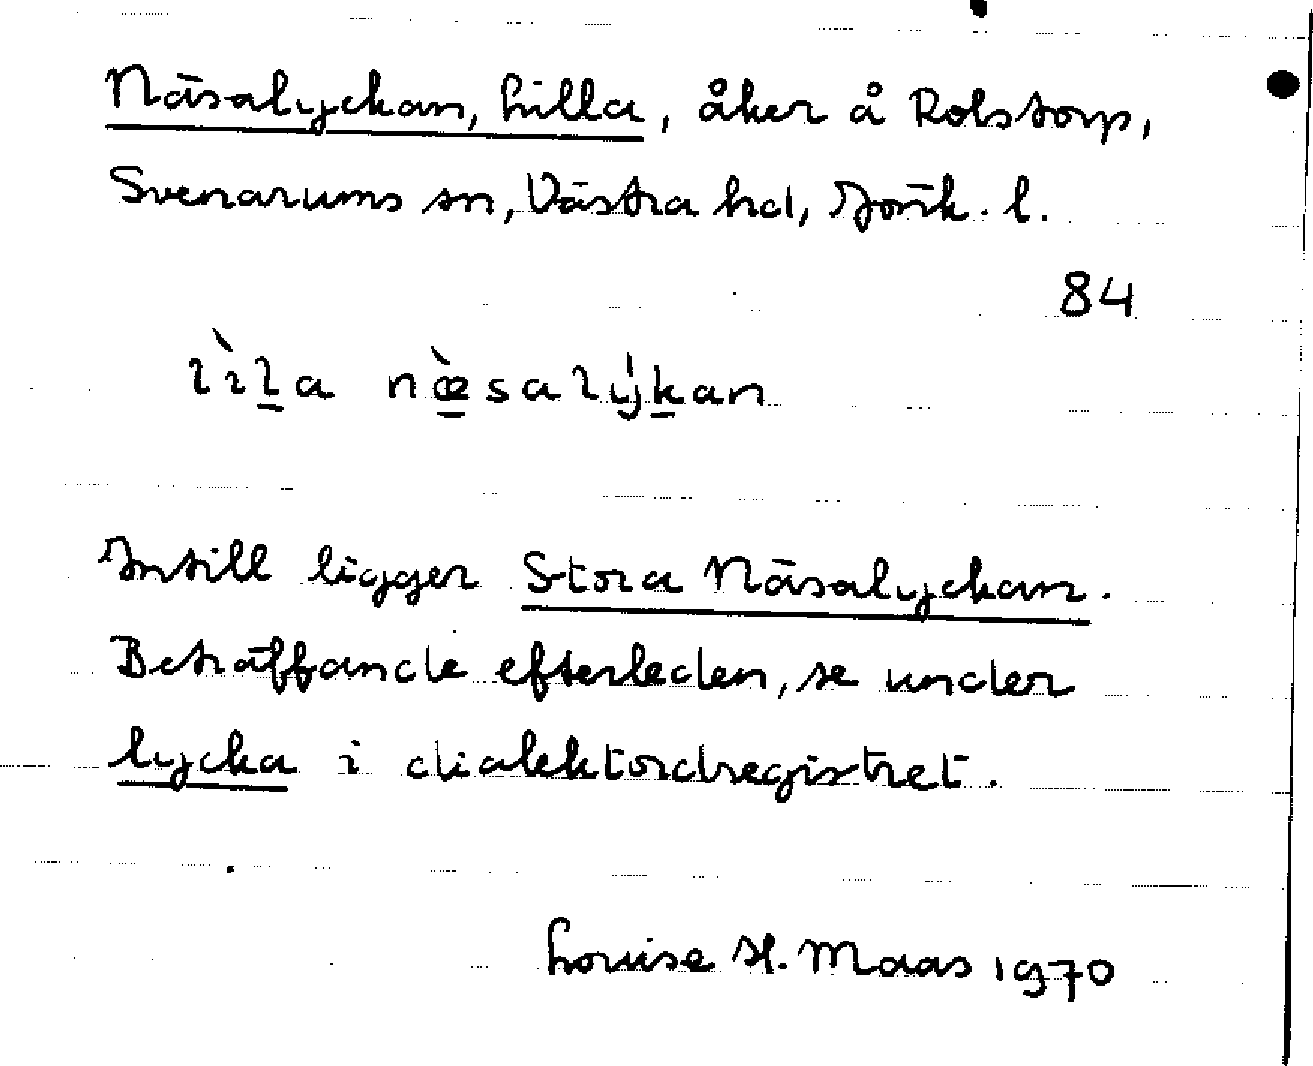 Näsalyckan, Lilla, åker å Rolstorp,
Svenarums sn, Västra hd, Jönk. l.
84
lìl̲a næ̲̀saly̍k̲an
Intill ligger Stora Näsalyckan.
Beträffande efterleden, se under
lycka i dialektordregistret.
Louise H. Maas 1970